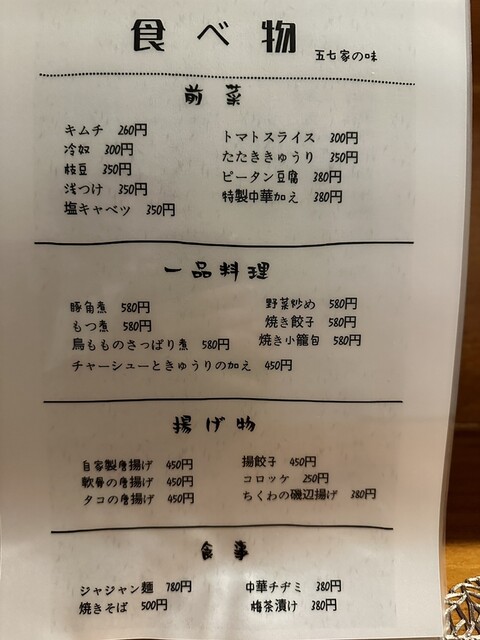 食べ物
五七家の味
前菜
キムチ 260円
冷奴 300円
枝豆 350円
浅つけ 350円
塩キャベツ 350円
トマトスライス 300円
たたききゅうり 350円
ピータン豆腐 380円
特製中華加え 380円
一品料理
豚角煮 580円
もつ煮 580円
鳥もものさっぱり煮 580円
チャーシューときゅうりの加え 450円
野菜炒め 580円
焼き餃子 580円
焼き小籠包 580円
揚げ物
自家製唐揚げ 450円
軟骨の唐揚げ 450円
タコの唐揚げ 450円
揚餃子 450円
コロッケ 250円
ちくわの磯辺揚げ 380円
食事
ジャジャン麺 780円
焼きそば 500円
中華チヂミ 380円
梅茶漬け 380円